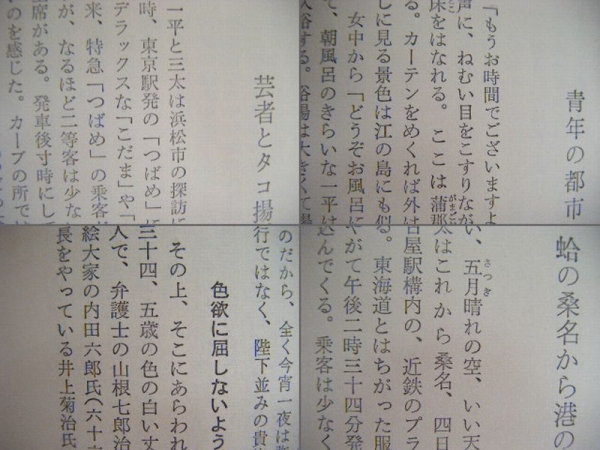 芸者とタコ揚
一平と三太は浜松市の探訪に
時、東京駅発の「つばめ」に
デラックスな「こだま」や「
来、特急「つばめ」の乗客
が、なるほど二等客は少な
座席がある。発車後寸時にして
のを感じた。カーブの所で
青年の都市
「もうお時間でございますよ
声に、ねむい目をこすりなが
床をはなれる。ここは蒲郡
る。カーテンをめくれば外は
しに見る景色は江の島にも似
女中から「どうぞお風呂に
て、朝風呂のきらいな一平は
入浴する。浴場は大きくて
のだから、全く今宵一夜は
行ではなく、陛下並みの貴
色欲に屈しないよう
その上、そこにあらわれ
三十四、五歳の色の白い丈
人で、弁護士の山根七郎治
絵大家の内田六郎氏(六十
長をやっている井上菊治氏
蛤の桑名から港の
い、五月晴れの空、いい天
太はこれから桑名、四日
古屋駅構内の、近鉄のプラ
る。東海道とはちがった服
やがて午後二時三十四分発
込んでくる。乗客は少なく